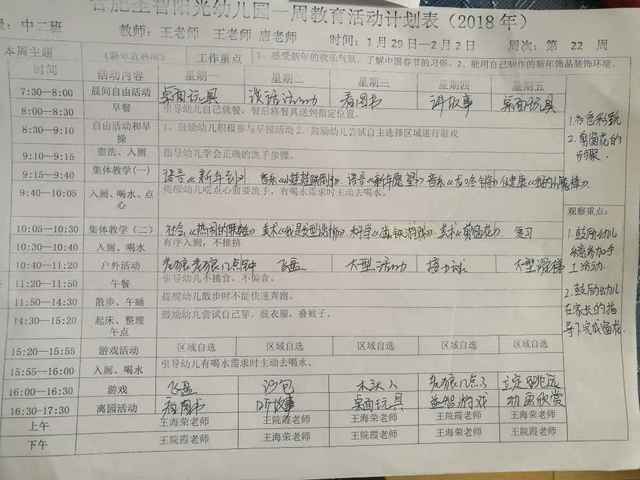 阳光幼儿园一周教育活动计划表（2018 年）
量：中二班 教师：王老师 王老师 唐老师 时间：1 月 29 日—2 月 2 日 周次：第 22 周
本周主题 工作重点 1、感受新年的欢乐气氛，了解中国春节的习俗。2、能用自己制作的新年饰品装饰环境。
时间 活动内容 星期一 星期二 星期三 星期四 星期五
7:30—8:00 晨间自由活动 桌面玩具 谈话活动 看图书 讲故事 桌面玩具
8:00—8:30 早餐 指导幼儿自己就餐，餐后将餐具送到指定位置。
8:30—9:10 自由活动和早操 1、鼓励幼儿积极参与早锻活动 2、鼓励幼儿尝试自主选择区域进行游戏
9:10—9:15 盥洗、入厕 指导幼儿学会正确的洗手步骤。
9:15—9:40 集体教学（一） 语言《新年老列 音乐 语言《新年愿望》 音乐
9:40—10:05 入厕、喝水、点心 提醒幼儿吃点心前要洗手，有喝水需求时主动去喝水。
10:05—10:30 集体教学（二） 社会 美术 科学 美术《剪窗花》 复习
10:30—10:40 入厕、喝水 有序入厕，不推挤
10:40—11:20 户外活动 老狼老狼几点钟 飞盘 大型活动 接力球 大型滑梯
11:20—11:50 午餐 引导幼儿不挑食、不偏食。
11:50—14:30 散步、午睡 提醒幼儿散步时不能快速奔跑。
14:30—15:20 起床、整理午点 鼓励幼儿尝试自己穿、脱衣服、叠被子。
15:20—15:55 游戏活动 区域自选 区域自选 区域自选 区域自选 区域自选
15:55—16:00 入厕、喝水 引导幼儿有喝水需求时主动去喝水。
16:00—16:30 游戏 飞盘 沙包 木头人 老狼几点了 立定跳远
16:30-17:30 离园活动 看图书 听故事 桌面玩具 益智游戏 动画欣赏
上午 王海荣老师 王院霞老师 王海荣老师 王院霞老师 王海荣老师
下午 王院霞老师 王海荣老师 王院霞老师 王海荣老师 王院霞老师
2.剪窗花的步骤
观察重点：
1.鼓励幼儿
活动.
2.鼓励幼儿在家长的指导下完成窗花.